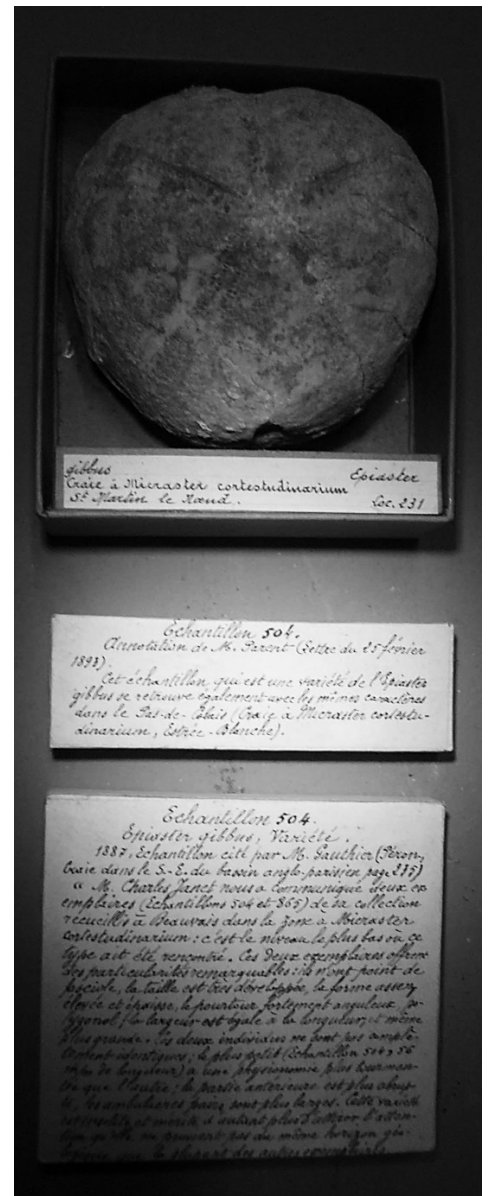 gibbus Epiaster
Craie à Micraster cortestudinarium
St Martin le Nœud. Loc. 231
Echantillon 504.
Annotation de M. Parent (Lettre du 25 février
1893).
Cet échantillon qui est une variété de l'Epiaster
gibbus se retrouve également avec les mêmes caractères
dans le Pas-de-Calais (Craie à Micraster cortestu-
dinarium, Estrée-Blanche).
Echantillon 504.
Epiaster gibbus, Variété.
1887, Echantillon cité par M. Gauthier (Péron,
Craie dans le S.-E. du bassin anglo-parisien, page 235)
" M. Charles Janet nous a communiqué deux ex
emplaires (Echantillons 504 et 865) de sa collection
recueillis à Beauvais dans la zone à Micraster
cortestudinarium : c'est le niveau le plus bas où ce
type ait été rencontré. Ces deux exemplaires offrent
des particularités remarquables : ils n'ont point de
fasciole, la taille est très développée, la forme assez
élevée et épaisse, le pourtour fortement anguleux, po-
lygonal ; la largeur est égale à la longueur, et même
plus grande. Les deux individus ne sont pas complè-
tement identiques ; le plus petit (Echantillon 504, 56
de longueur) a une physionomie plus tourmen-
tée que l'autre ; la partie antérieure est plus
les ambulacres pairs sont plus larges. Cette variété
est et mérite d'autant plus d'attirer l'atten-
tion qu'elle ne provient pas du même horizon
que la plupart des autres exemplaires